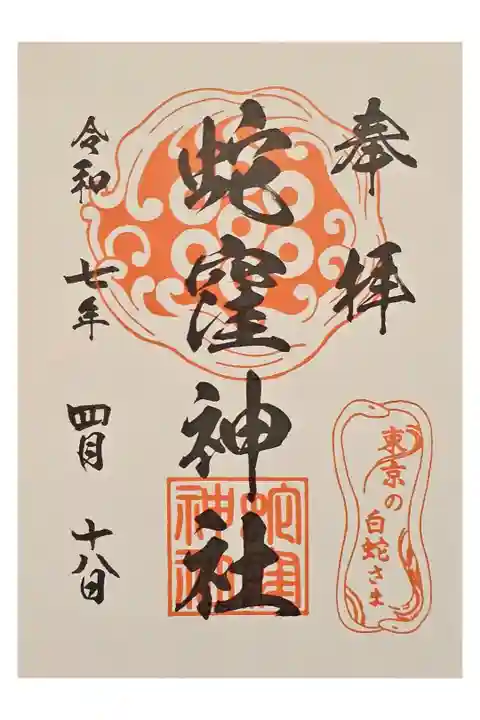 奉拝
蛇窪神社
東京の
白蛇さま
蛇窪
神社
令和七年四月十八日